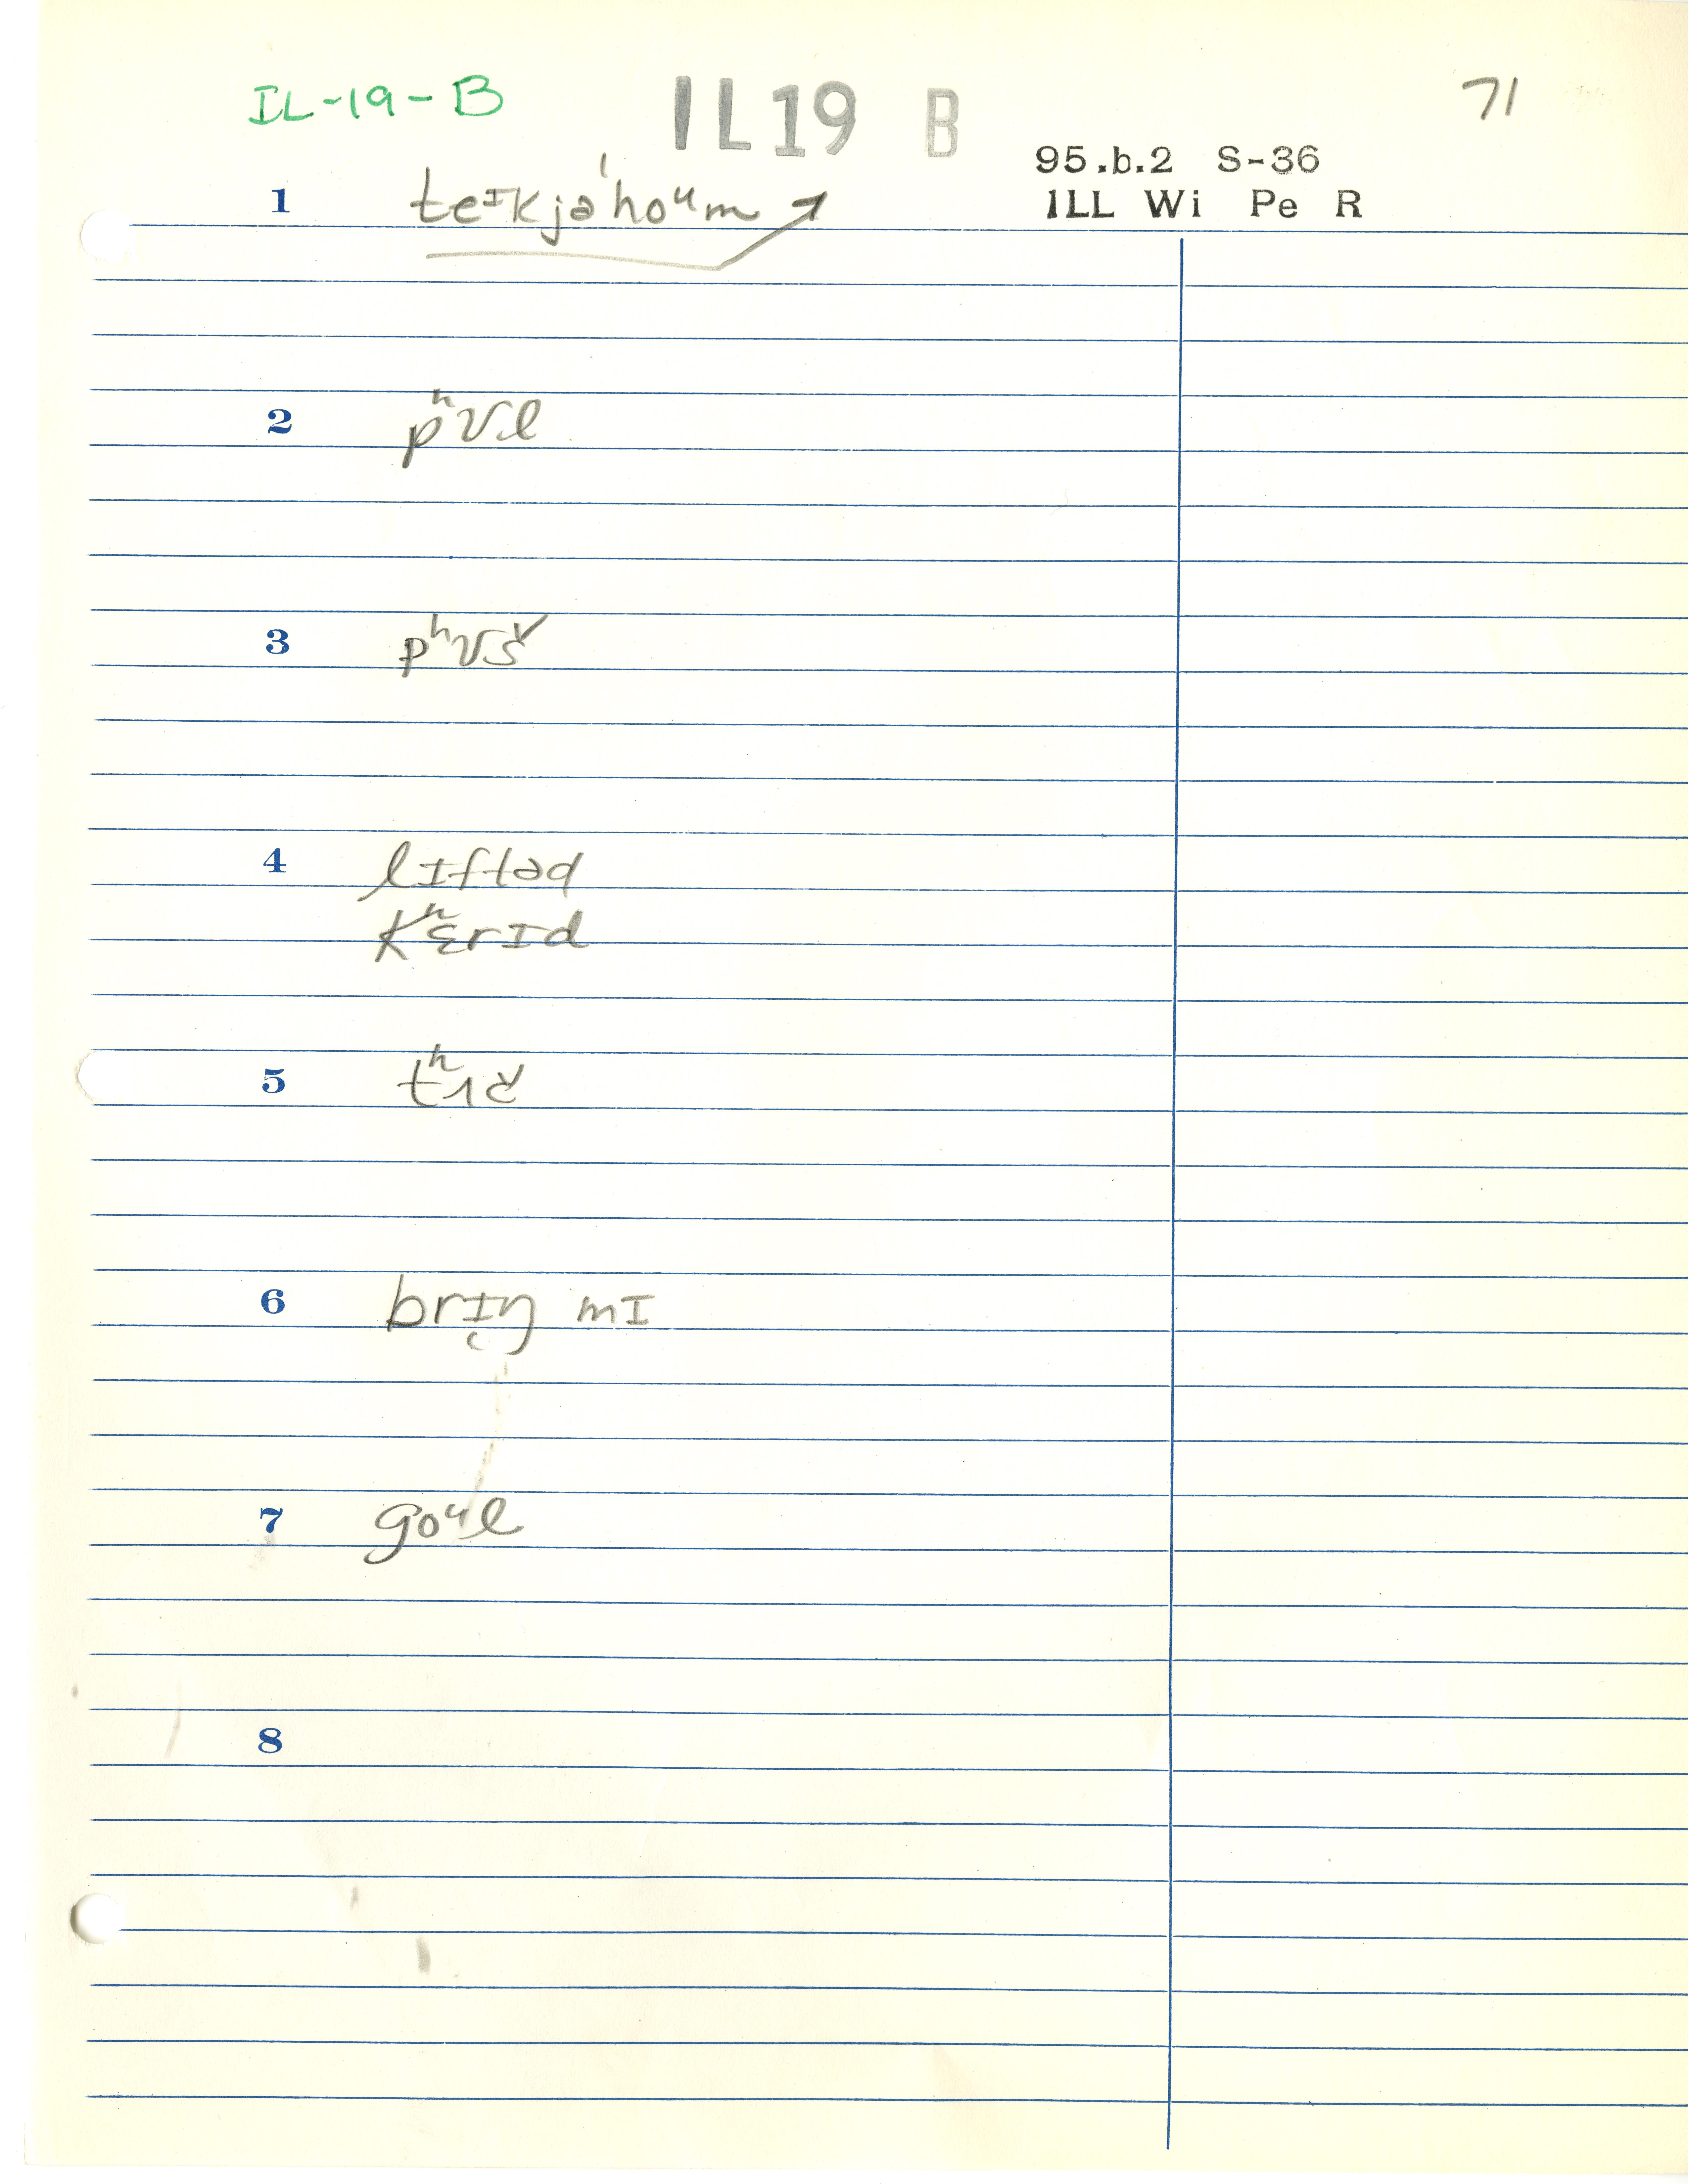 IL-19-B IL19 B 71
95.b.2 S-36
1 teɪkjəˈhoᵘm ILL Wi Pe R
2 pʰʊl
3 pʰʊš
4 lɪftəd
kʰɛrɪd
5
6 brɪŋ mɪ
7 goᵘl
8